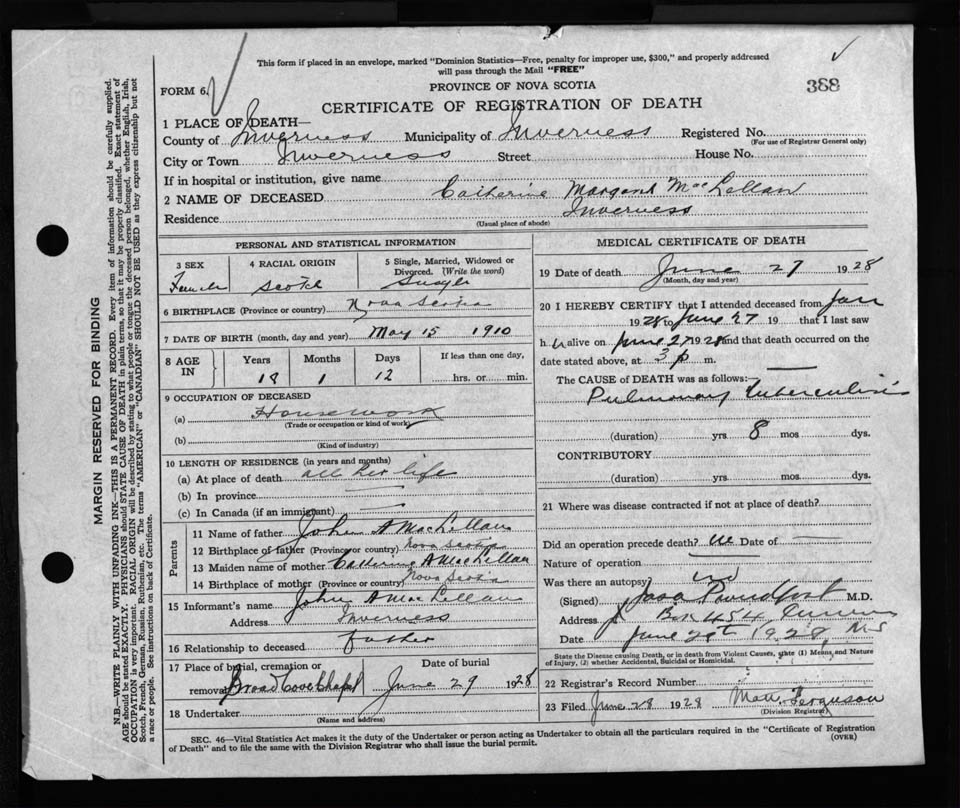 This form if placed in an envelope, marked "Dominion Statistics—Free, penalty for improper use, $300," and properly addressed
will pass through the Mail "FREE"
FORM 6.
PROVINCE OF NOVA SCOTIA
388
CERTIFICATE OF REGISTRATION OF DEATH
1 PLACE OF DEATH—
County of Inverness Municipality of Inverness Registered No.
(For use of Registrar General only)
City or Town Inverness Street House No.
If in hospital or institution, give name
2 NAME OF DECEASED Catherine Margaret MacLellan
Residence Inverness
(Usual place of abode)
PERSONAL AND STATISTICAL INFORMATION
3 SEX 4 RACIAL ORIGIN 5 Single, Married, Widowed or
Divorced. (Write the word)
Female Scotch Single
6 BIRTHPLACE (Province or country) Nova Scotia
7 DATE OF BIRTH (month, day and year) May 15 1910
8 AGE IN Years Months Days If less than one day,
18 1 12 hrs. or min.
9 OCCUPATION OF DECEASED
(a) Housework
(Trade or occupation or kind of work)
(b)
(Kind of industry)
10 LENGTH OF RESIDENCE (in years and months)
(a) At place of death all her life
(b) In province —
(c) In Canada (if an immigrant) —
Parents
11 Name of father John A MacLellan
12 Birthplace of father (Province or country) Nova Scotia
13 Maiden name of mother Catherine A MacLellan
14 Birthplace of mother (Province or country) Nova Scotia
15 Informant's name John A MacLellan
Address Inverness
16 Relationship to deceased father
17 Place of burial, cremation or Date of burial
removal Broad Cove Chapel June 29 1928
18 Undertaker
(Name and address)
MEDICAL CERTIFICATE OF DEATH
19 Date of death June 27 1928
(Month, day and year)
20 I HEREBY CERTIFY that I attended deceased from Jan
1928 to June 27 19 that I last saw
h er alive on June 27 1928 and that death occurred on the
date stated above, at 3 p m.
The CAUSE OF DEATH was as follows:—
Pulmonary Tuberculosis
(duration) yrs 8 mos dys.
CONTRIBUTORY
(duration) yrs. mos. dys.
21 Where was disease contracted if not at place of death?
Did an operation precede death? no Date of —
Nature of operation
Was there an autopsy no
(Signed) M.D.
Address Box 454 Inverness
Date June 28th 1928 NS
State the Disease causing Death, or in death from Violent Causes, state (1) Means and Nature
of Injury, (2) whether Accidental, Suicidal or Homicidal.
22 Registrar's Record Number
23 Filed June 28 1928 Matt. Ferguson
(Division Registrar)
SEC. 46—Vital Statistics Act makes it the duty of the Undertaker or person acting as Undertaker to obtain all the particulars required in the "Certificate of Registration
of Death" and to file the same with the Division Registrar who shall issue the burial permit. (OVER)
MARGIN RESERVED FOR BINDING
N.B.—WRITE PLAINLY WITH UNFADING INK—THIS IS A PERMANENT RECORD. Every item of information should be carefully supplied.
AGE should be stated EXACTLY. PHYSICIANS should STATE CAUSE OF DEATH in plain terms, so that it may be properly classified. Exact statement of
OCCUPATION is very important. RACIAL ORIGIN will be described by stating to what people or tongue the deceased person belonged, whether English, Irish,
Scotch, French, German, Russian, Ruthenian, etc. The terms "AMERICAN" or "CANADIAN" SHOULD NOT BE USED as they express citizenship but not
a race or people. See instructions on back of Certificate.